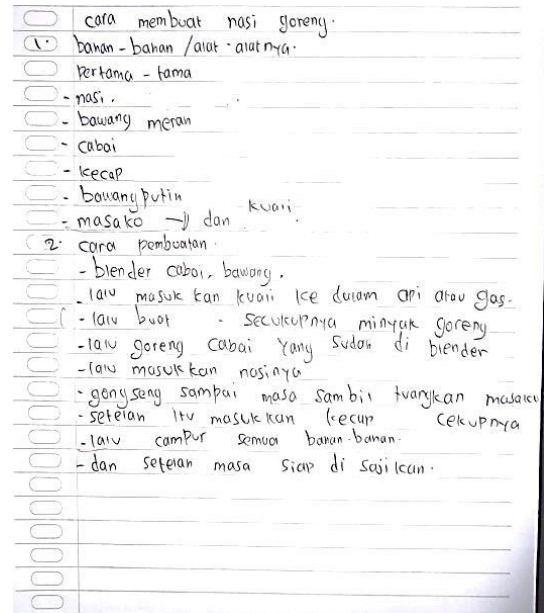 cara membuat nasi goreng.
1. bahan-bahan /alat-alatnya.
Pertama-tama
- nasi.
- bawang merah
- cabai
- kecap
- bawang putih
- masako → dan kuali.
2. cara pembuatan.
- blender cabai, bawang.
- lalu masuk kan kuali ke dalam api atau gas.
- lalu buat - secukupnya minyak goreng
- lalu goreng cabai yang sudah di blender
- lalu masuk kan nasinya
- gongseng sampai masa sambil tuangkan masako
- setelah itu masuk kan kecap cekupnya
- lalu campur semua bahan-bahan.
- dan setelah masa siap di sajikan.